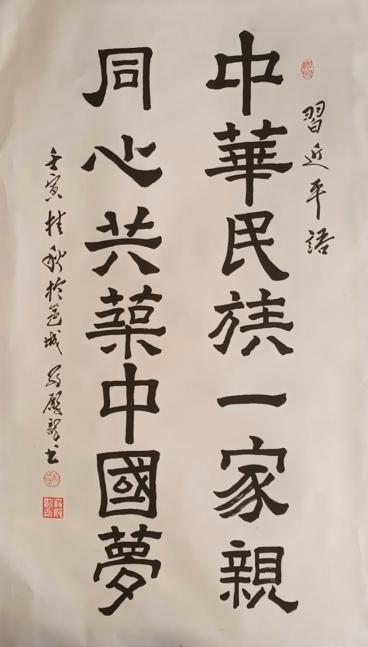 習近平語
中華民族一家親
同心共築中國夢
壬寅桂秋於邕城